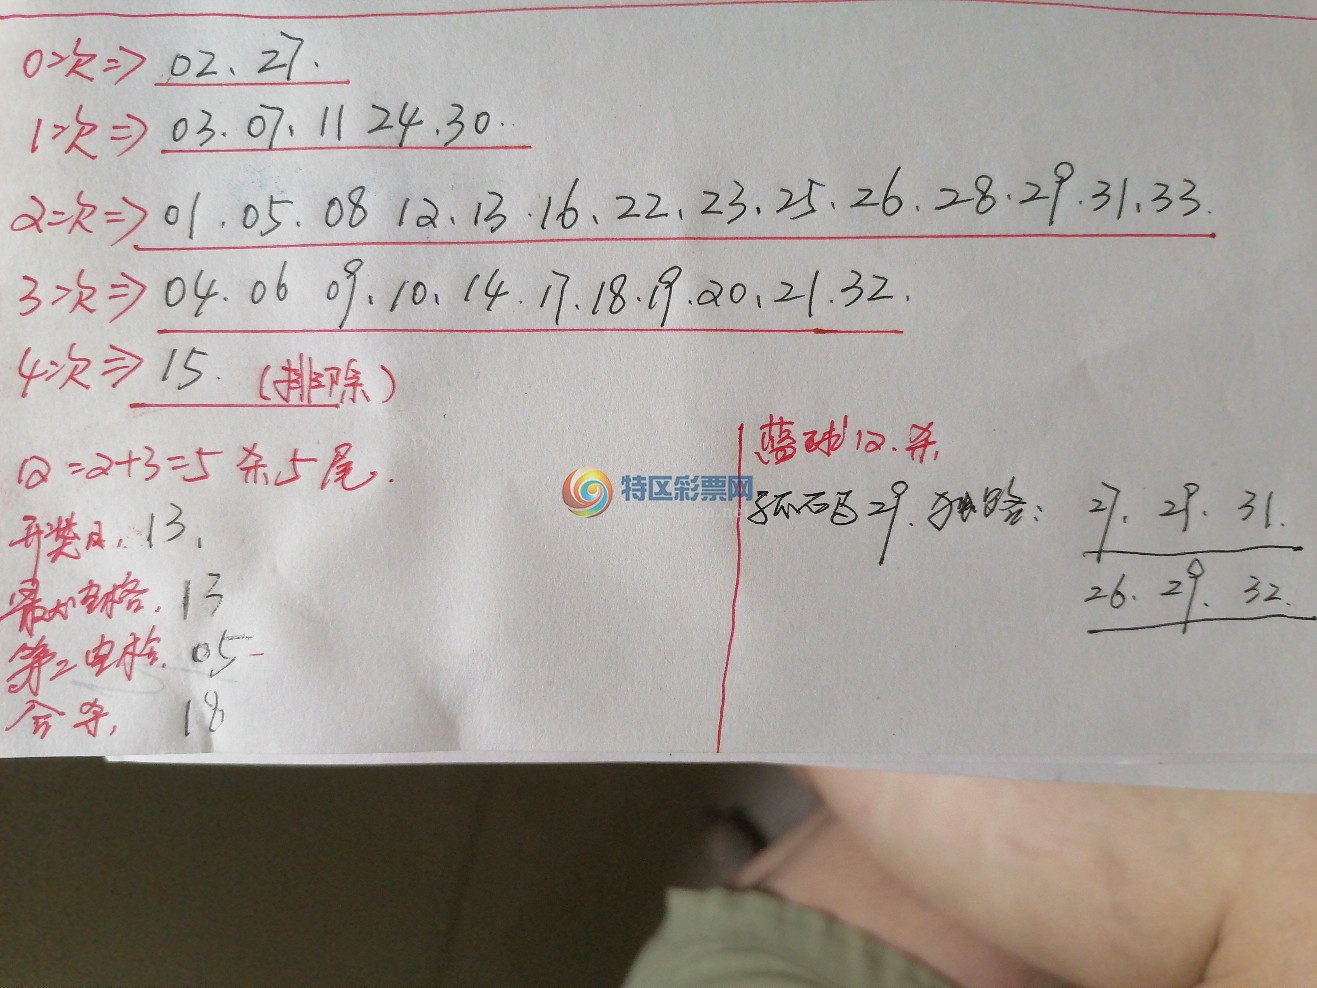 0次⇒02、27.
1次⇒03.07、11 24.30.
2次⇒01.05.08 12、13.16、22、23、25.26.28.29.31.33.
3次⇒04.06 09、10、14.17.18.19.20、21.32.
4次⇒15. (排除)
12=2+3=5 杀5尾.
开奖日、13、
最大电格. 13
第二电格. 05
合杀, 18
蓝球12.杀
特区彩票网
孤石码29. 路: 27. 29. 31.
26. 29. 32.